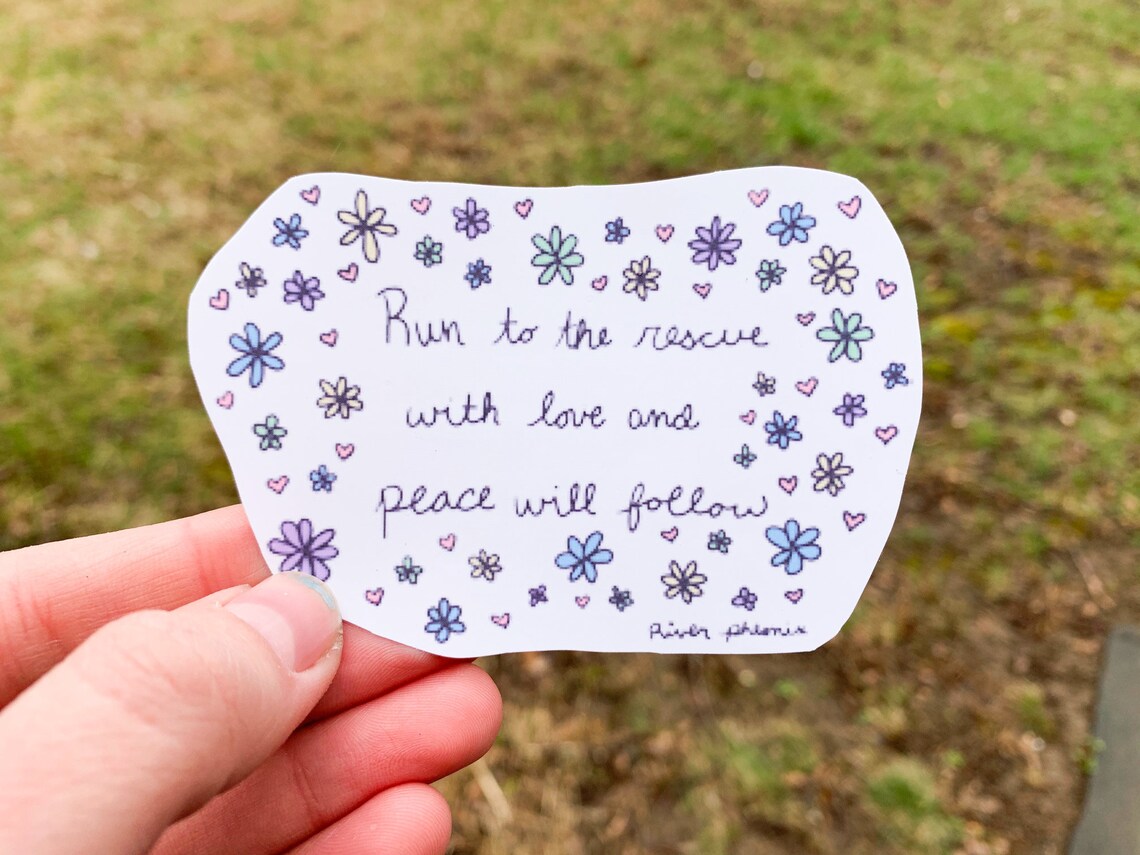 Run to the rescue
with love and
peace will follow
River Pheonix